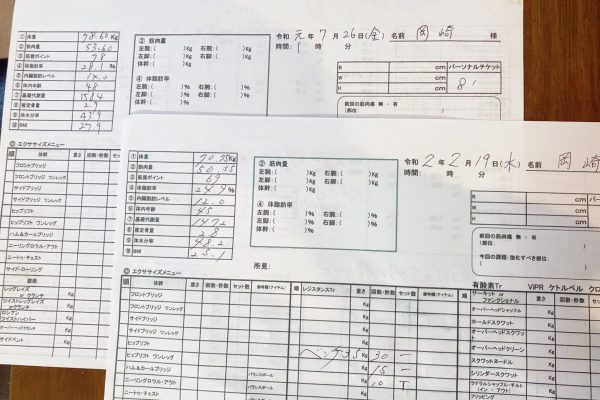 令和 元 年 7 月 26 日(金) 名前 岡崎 様
時間: 時 分
① 体重 78.60 Kg
② 筋肉量 53.60
③ 筋質ポイント 78
④ 体脂肪率 28.1 %
⑤ 内臓脂肪レベル 14.0
⑥ 体内年齢 48
⑦ 基礎代謝量 1584
⑧ 推定骨量 2.9
⑨ 体水分率 43.9
⑩ BMI 27.9
② 筋肉量
左腕:( )Kg 右腕:( )Kg
左脚:( )Kg 右脚:( )Kg
体幹:( )Kg
④ 体脂肪率
左腕:( )% 右腕:( )%
左脚:( )% 右脚:( )%
体幹:( )%
B cm パーソナルチケット
W cm
H cm
前回の筋肉痛 無・有
(部位
◎ エクササイズメニュー
順 体幹 重さ 回数・秒数 セット
フロントブリッジ
フロントブリッジ ワンレッグ
サイドブリッジ
サイドブリッジ ワンレッグ
ヒップリフト
ヒップリフト ワンレッグ
ハム&カールブリッジ
ニーリングロウル・アウト
ニートゥ・チェスト
サイド・ローリング
レッグレイズ or クランチ
ツイストレッグレイズ or クランチ
ロシアンツイスト
オーバーヘッドクランチ
サイドベント
令和 2 年 2 月 19 日(水) 名前 岡崎
時間: 時 分
① 体重 70.75 Kg
② 筋肉量 50.35
③ 筋質ポイント 69
④ 体脂肪率 24.9 %
⑤ 内臓脂肪レベル 12.0
⑥ 体内年齢 45
⑦ 基礎代謝量 1472
⑧ 推定骨量 2.8
⑨ 体水分率 48.2
⑩ BMI 25.1
② 筋肉量
左腕:( )Kg 右腕:( )Kg
左脚:( )Kg 右脚:( )Kg
体幹:( )Kg
④ 体脂肪率
左腕:( )% 右腕:( )%
左脚:( )% 右脚:( )%
体幹:( )%
B cm
W cm
H cm
前回の筋肉痛 無・有
(部位
今回の課題・強化すべき部位
所見:
◎ エクササイズメニュー
有酸素Tr ViPR ケトルベル クロ
順 体幹 重さ 回数・秒数 セット数 レジスタンスTr 重さ 回数・秒数 セット数 順 サーキット or ファンクショナル 重さ 回数・秒数
フロントブリッジ Kg
フロントブリッジ ワンレッグ Kg
サイドブリッジ Kg
サイドブリッジ ワンレッグ Kg
ヒップリフト Kg
ヒップリフト ワンレッグ Kg ベンチ 35 Kg 30 一
ハム&カールブリッジ バランスボール Kg 15 一
ニーリングロウル・アウト バランスボール Kg 10 T
ニートゥ・チェスト
オーバーヘッドシャッフル
ホールドスクワット
オーバーヘッドスクワット
オーバーヘッドクリーン
スクワットヌードル
シリンダースクワット
ラテラルシャッフル・チルト(イン・アウト)
フリッピング